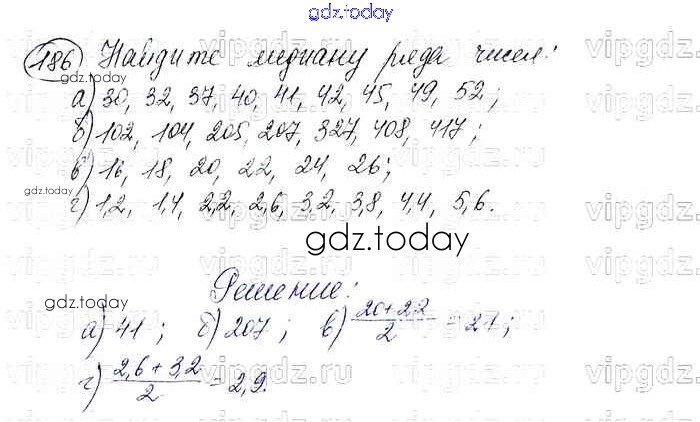 gdz.today
186 Найдите медиану ряда чисел:
а) 30, 32, 37, 40, 41, 42, 45, 49, 52;
б) 102, 104, 205, 207, 327, 408, 417;
в) 16, 18, 20, 22, 24, 26;
г) 1,2, 1,4, 2,2, 2,6, 3,2, 3,8, 4,4, 5,6.
gdz.today
Решение:
а) 41; б) 207; в) (20+22)/2 = 21;
г) (2,6+3,2)/2 = 2,9.